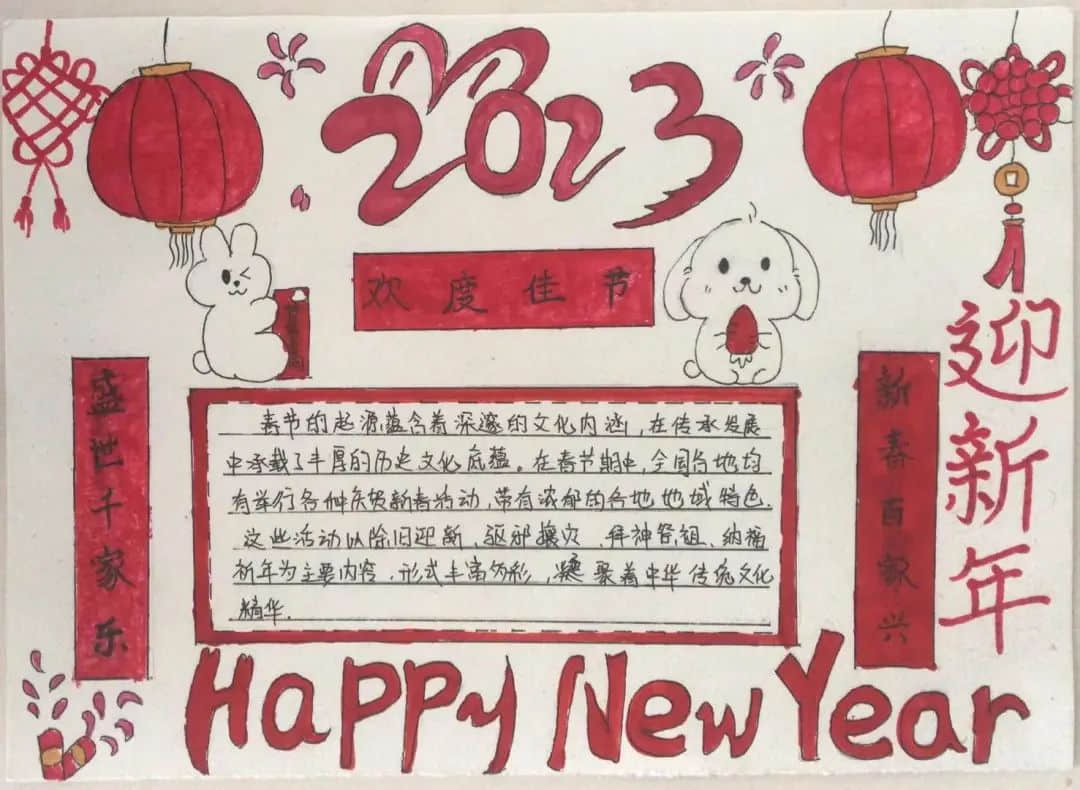 2023
欢度佳节
盛世千家乐
春节的起源蕴含着深邃的文化内涵,在传承发展
中承载了丰厚的历史文化底蕴。在春节期间,全国各地均
有举行各种庆贺新春活动,带有浓郁的各地地域特色.
这些活动以除旧迎新、驱邪攘灾、拜神祭祖、纳福
祈年为主要内容,形式丰富多彩,凝聚着中华传统文化
精华.
新春百家兴
迎新年
Happy New Year